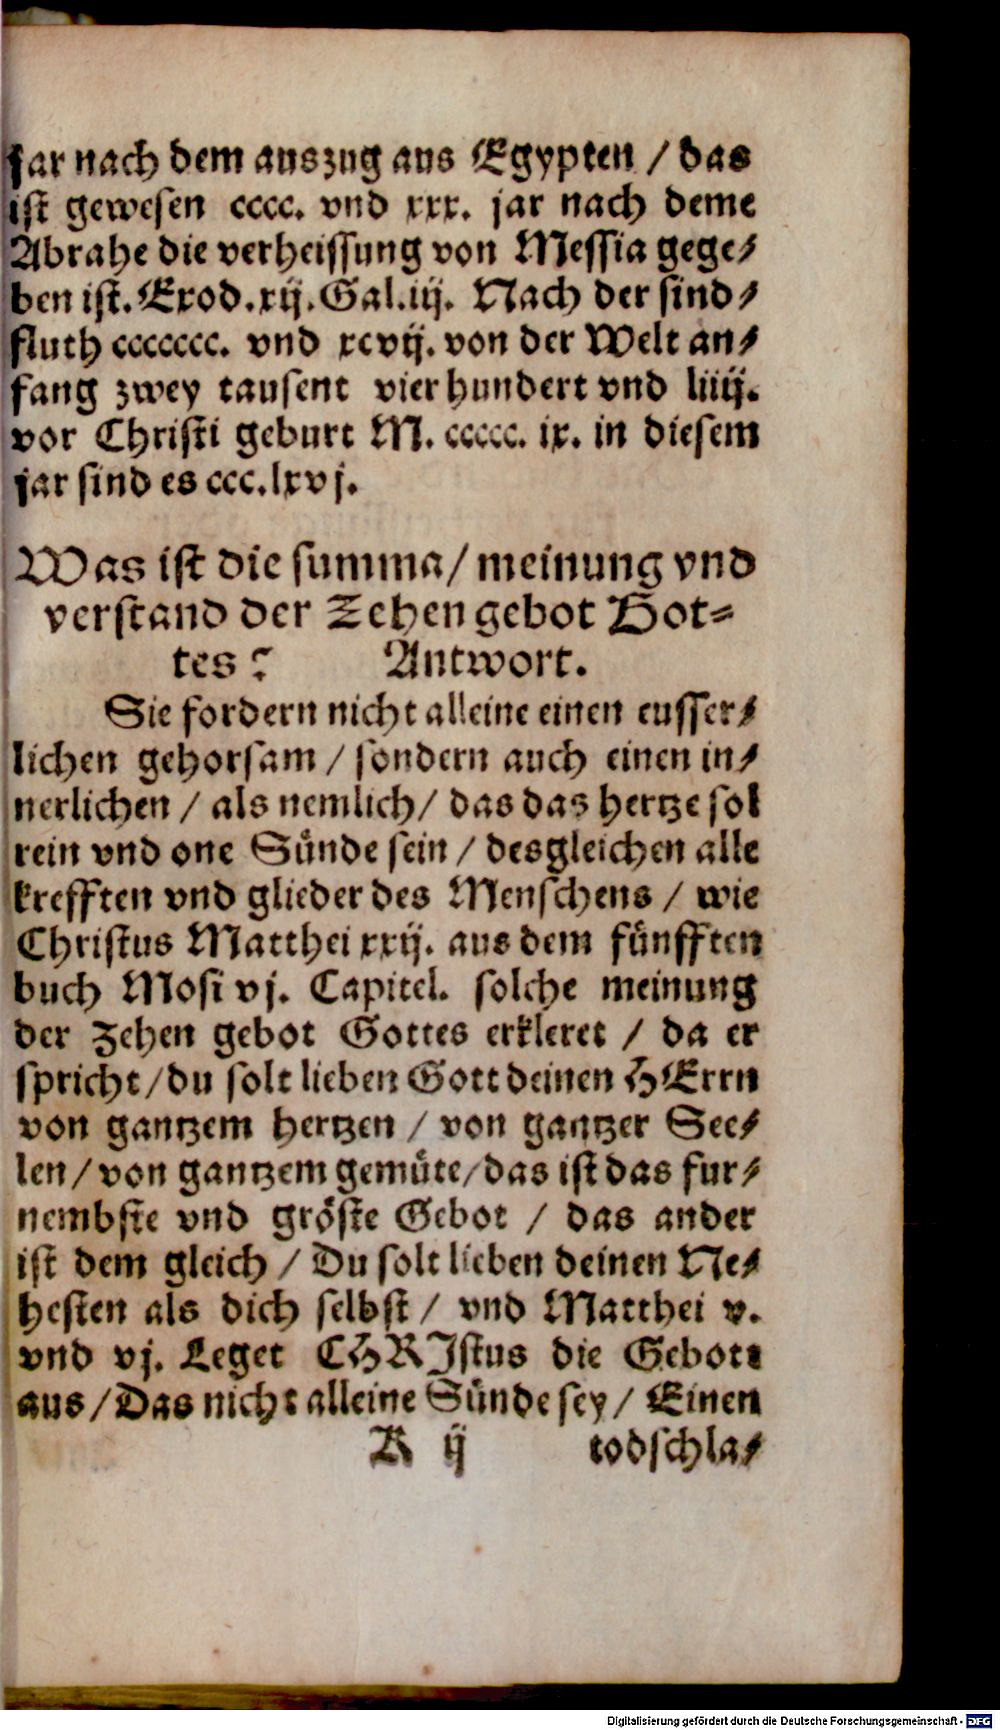 jar nach dem auszug aus Egypten / das
ist gewesen cccc. vnd xxx. jar nach deme
Abrahe die verheissung von Messia gege⸗
ben ist. Exod.xij.Gal.iij. Nach der sind⸗
fluth ccccccc. vnd xcvij. von der Welt an⸗
fang zwey tausent vier hundert vnd liiij.
vor Christi geburt M. ccccc. ix. in diesem
jar sind es ccc.lxvj.
Was ist die summa / meinung vnd
verstand der Zehen gebot Got⸗
tes? Antwort.
Sie fordern nicht alleine einen eusser⸗
lichen gehorsam / sondern auch einen in⸗
nerlichen / als nemlich / das das hertze sol
rein vnd one Sünde sein / desgleichen alle
krefften vnd glieder des Menschens / wie
Christus Matthei xxij. aus dem fünfften
buch Mosi vj. Capitel. solche meinung
der zehen gebot Gottes erkleret / da er
spricht / du solt lieben Gott deinen HErrn
von gantzem hertzen / von gantzer See⸗
len / von gantzem gemüte / das ist das fur⸗
nembste vnd gröste Gebot / das ander
ist dem gleich / Du solt lieben deinen Ne⸗
hesten als dich selbst / vnd Matthei v.
vnd vj. Leget CHRIstus die Gebott
aus / Das nicht alleine Sünde sey / Einen
K ij todschla⸗
Digitalisierung gefördert durch die Deutsche Forschungsgemeinschaft - DFG